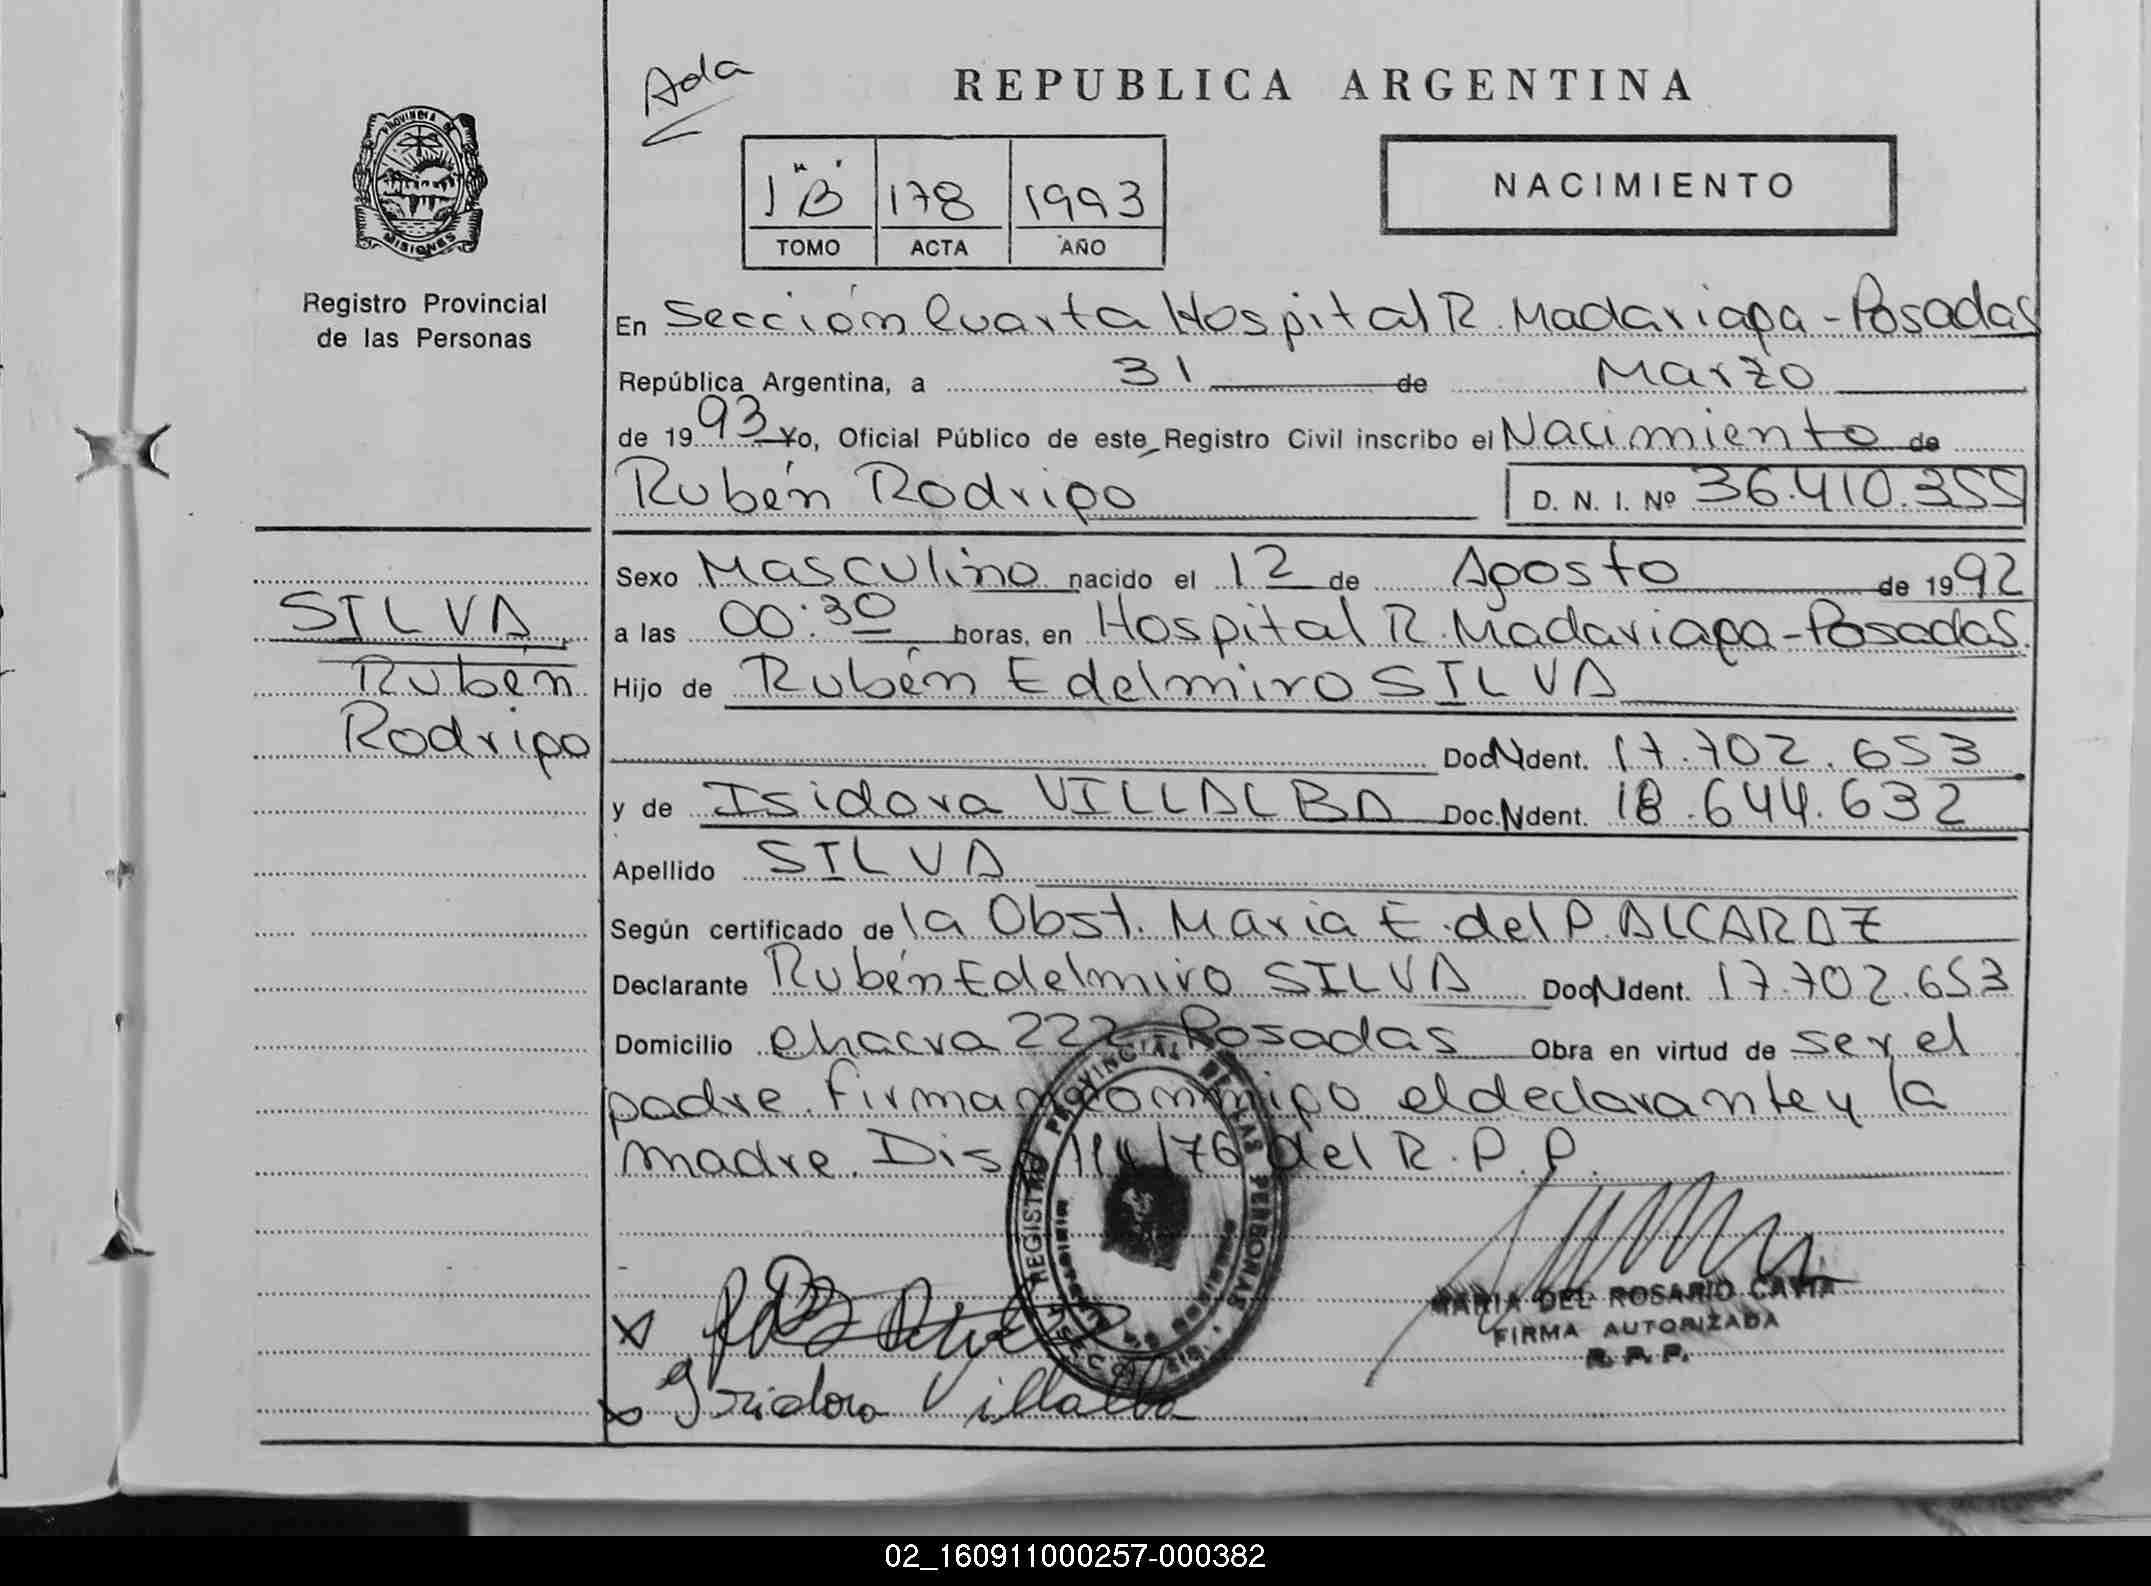 Ada
REPUBLICA ARGENTINA
PROVINCIA DE
MISIONES
1 "B" 178 1993
TOMO ACTA AÑO
NACIMIENTO
Registro Provincial
de las Personas
En Sección Cuarta Hospital R. Madariaga - Posadas
República Argentina, a 31 de Marzo
de 1993 Yo, Oficial Público de este Registro Civil inscribo el Nacimiento de
Rubén Rodrigo D. N. I. Nº 36.410.355
Sexo Masculino nacido el 12 de Agosto de 1992
SILVA
Rubén
Rodrigo
a las 00:30 horas, en Hospital R. Madariaga - Posadas.
Hijo de Rubén Edelmiro SILVA
Doc.Ident. 17.702.653
y de Isidora VILLALBA Doc.Ident. 18.644.632
Apellido SILVA
Según certificado de la Obst. Maria E. del P. ALCARAZ
Declarante Rubén Edelmiro SILVA Doc.Ident. 17.702.653
Domicilio chacra 222 Posadas Obra en virtud de ser el
padre. Firman conmigo el declarante y la
madre. Dis. 114/76 del R.P.P.
REGISTRO PROVINCIAL DE LAS PERSONAS
MARIA DEL ROSARIO CAVIA
FIRMA AUTORIZADA
R. P. P.
x
x Isidora Villalba
02_160911000257-000382